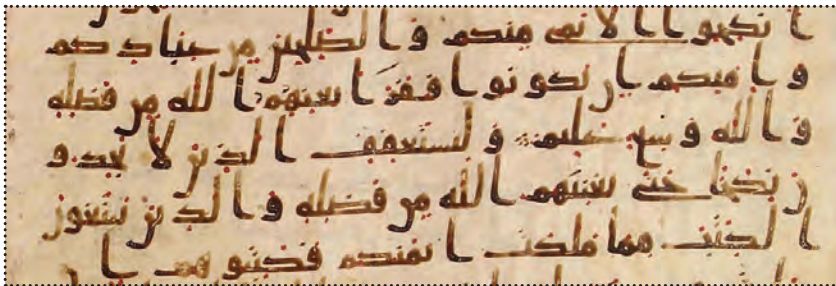 ا نكحوا ا لا يمى منكم و ا لصلحين من عباد كم
و ا مىكم ا ن يكو نو ا فقر ا يغنهم ا لله من فضله
و ا لله و سع عليم و ليستعفف ا لذين لا يجدو
ن نكحا حتى يغنيهم ا لله من فضله و ا لذين يبتغون
ا لكتب مما ملكت ا يمنكم فكتبو هم ا ن